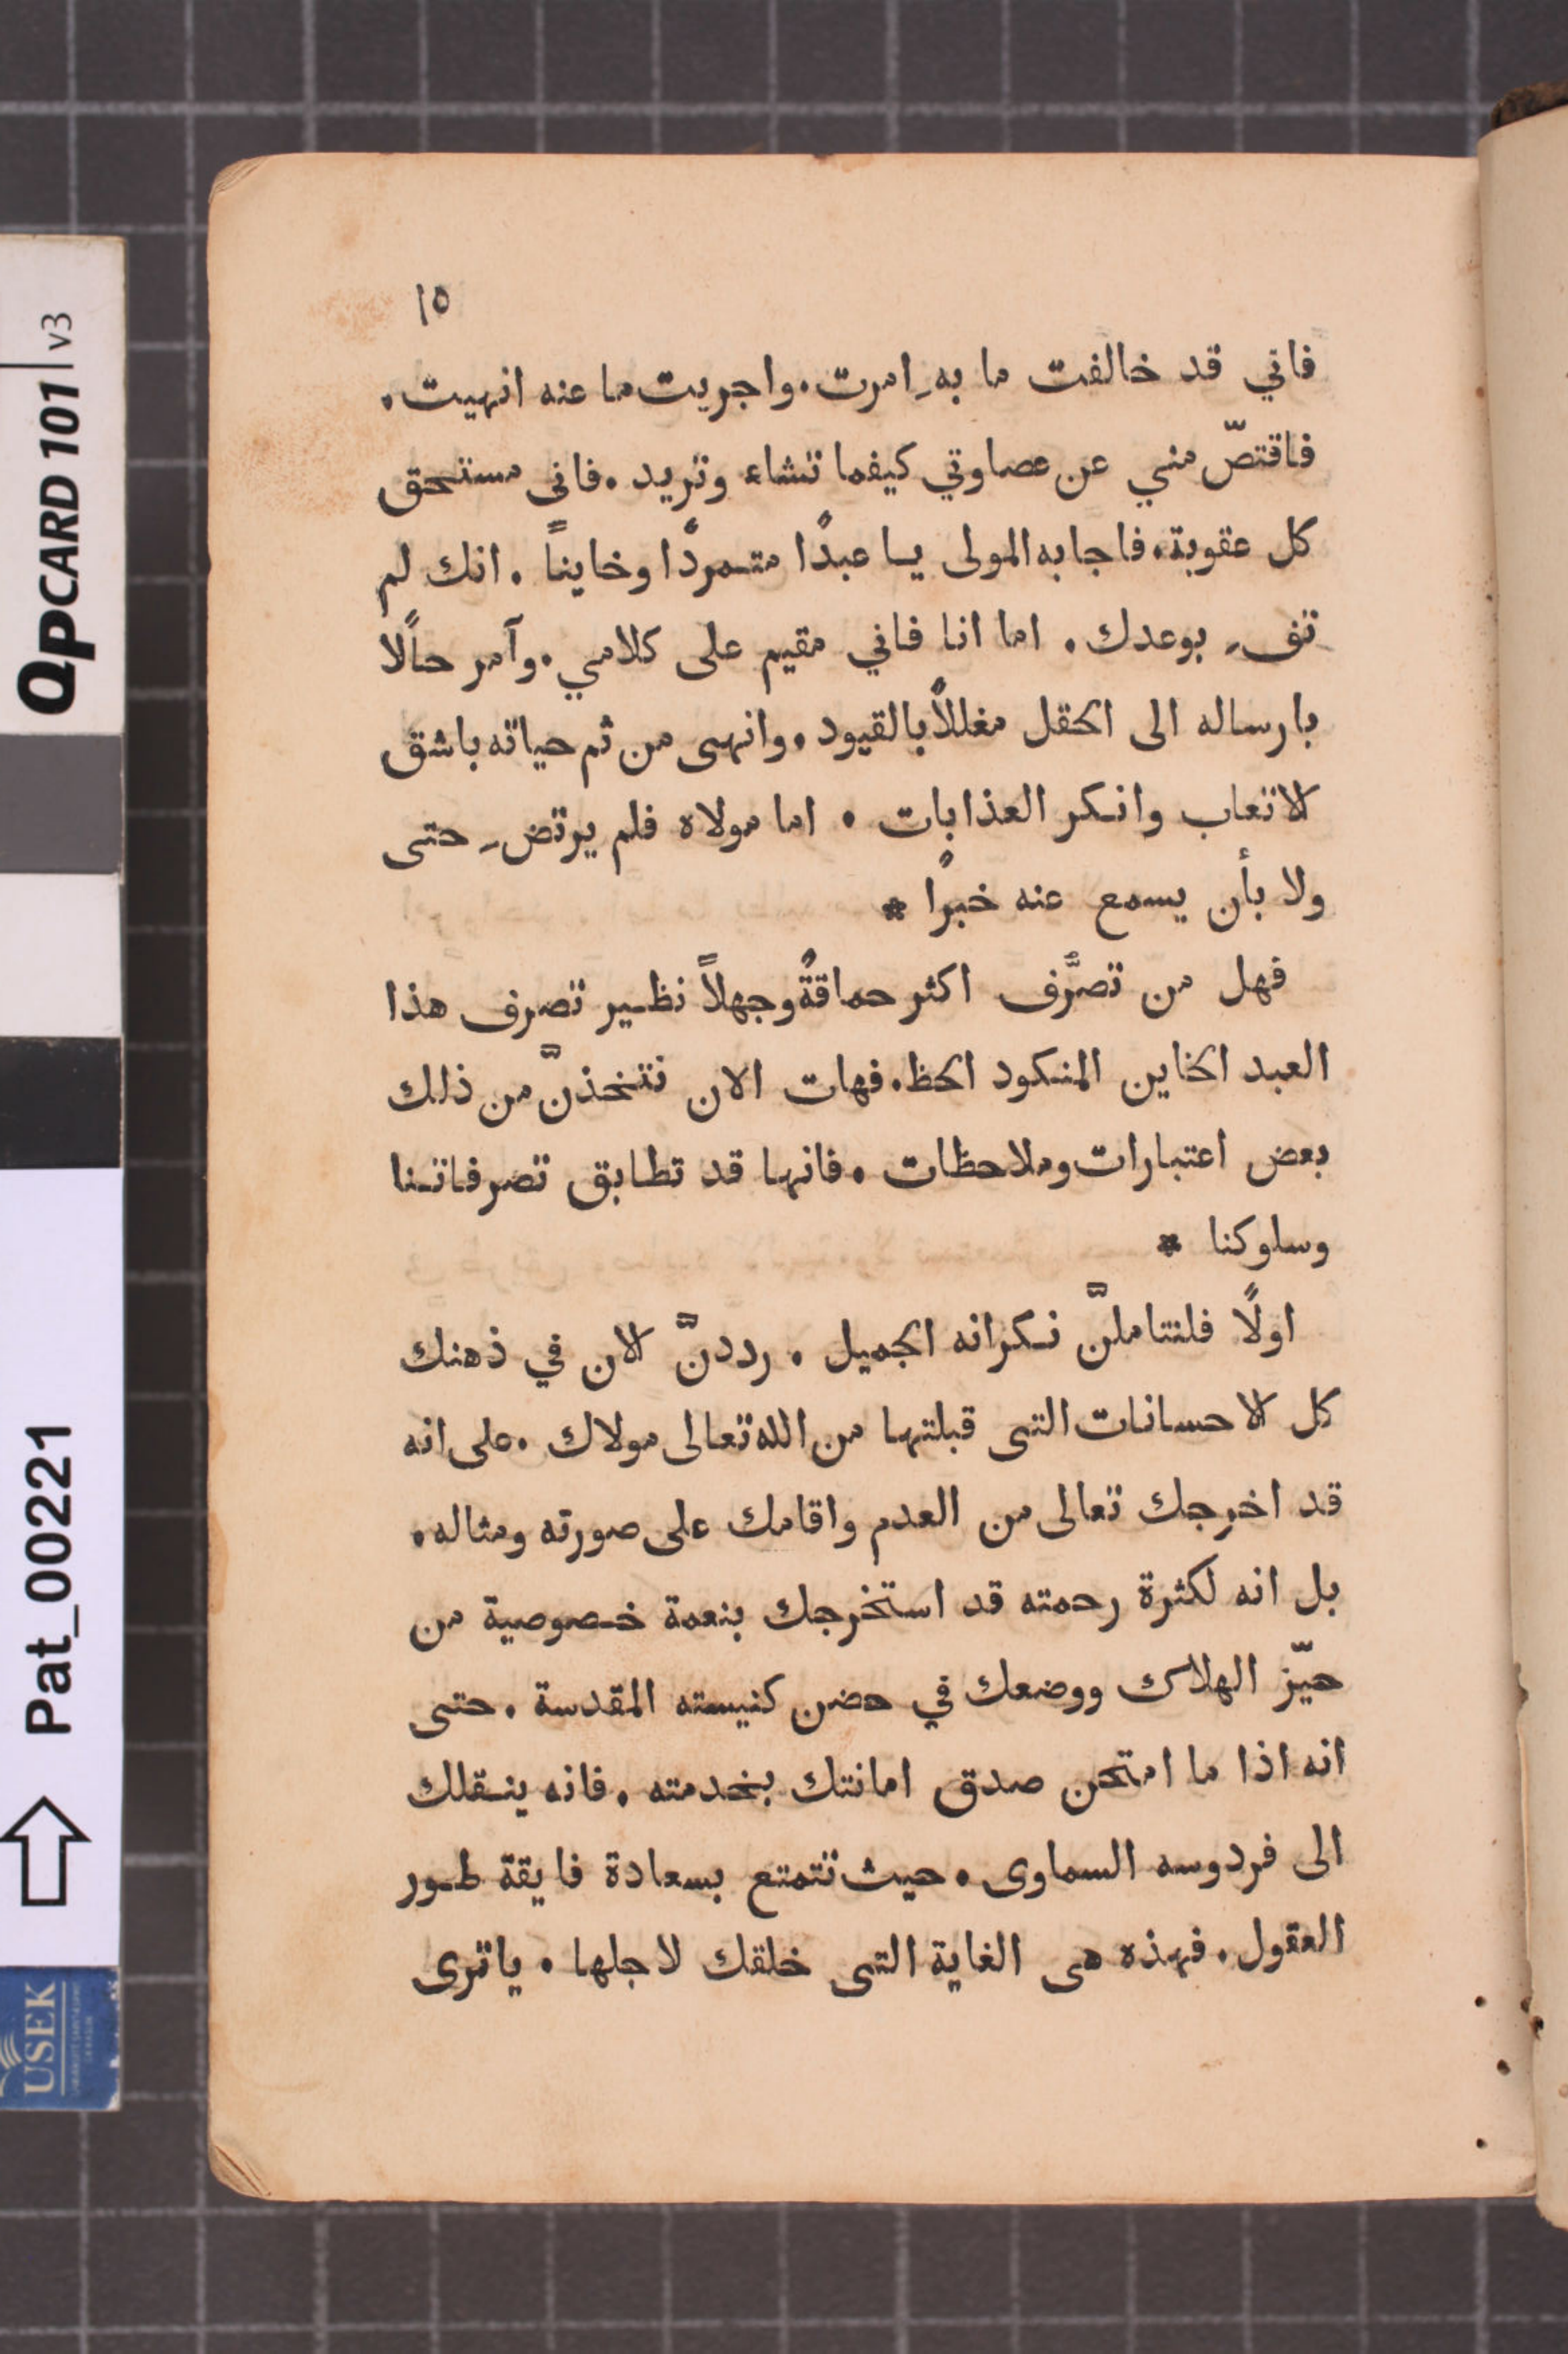 ١٥
فاني قد خالفت ما بهِ امرت. واجريت ما عنه انهيت.
فاقتصّ مني عن عصاوتي كيفما تشاء وتريد. فانى مستحق
كل عقوبة. فاجابه المولى يا عبدًا متمردًا وخاينًا. انك لم
تفِ بوعدك. اما انا فاني مقيم على كلامي. وآمر حالًا
بارساله الى الحقل مغللًا بالقيود. وانهى من ثم حياته باشق
الاتعاب وانكر العذابات. اما مولاه فلم يرتضِ حتى
ولا بأن يسمع عنه خبرًا *
فهل من تصرُّف اكثر حماقةً وجهلًا نظير تصرف هذا
العبد الخاين المنكود الحظ. فهات الان نتخذنَّ من ذلك
بعض اعتبارات وملاحظات. فانها قد تطابق تصرفاتنا
وسلوكنا *
اولًا فلنتاملنَّ نكرانه الجميل. رددنَّ الان في ذهنك
كل الاحسانات التى قبلتها من الله تعالى مولاك. على انه
قد اخرجك تعالى من العدم واقامك على صورته ومثاله.
بل انه لكثرة رحمته قد استخرجك بنعمة خصوصية من
حيّز الهلاك ووضعك في حضن كنيسته المقدسة. حتى
انه اذا ما امتحن صدق امانتك بخدمته. فانه ينقلك
الى فردوسه السماوى. حيث تتمتع بسعادة فايقة طور
العقول. فهذه هى الغاية التى خلقك لاجلها. ياترى
QPCARD 101 v3
Pat_00221
USEK